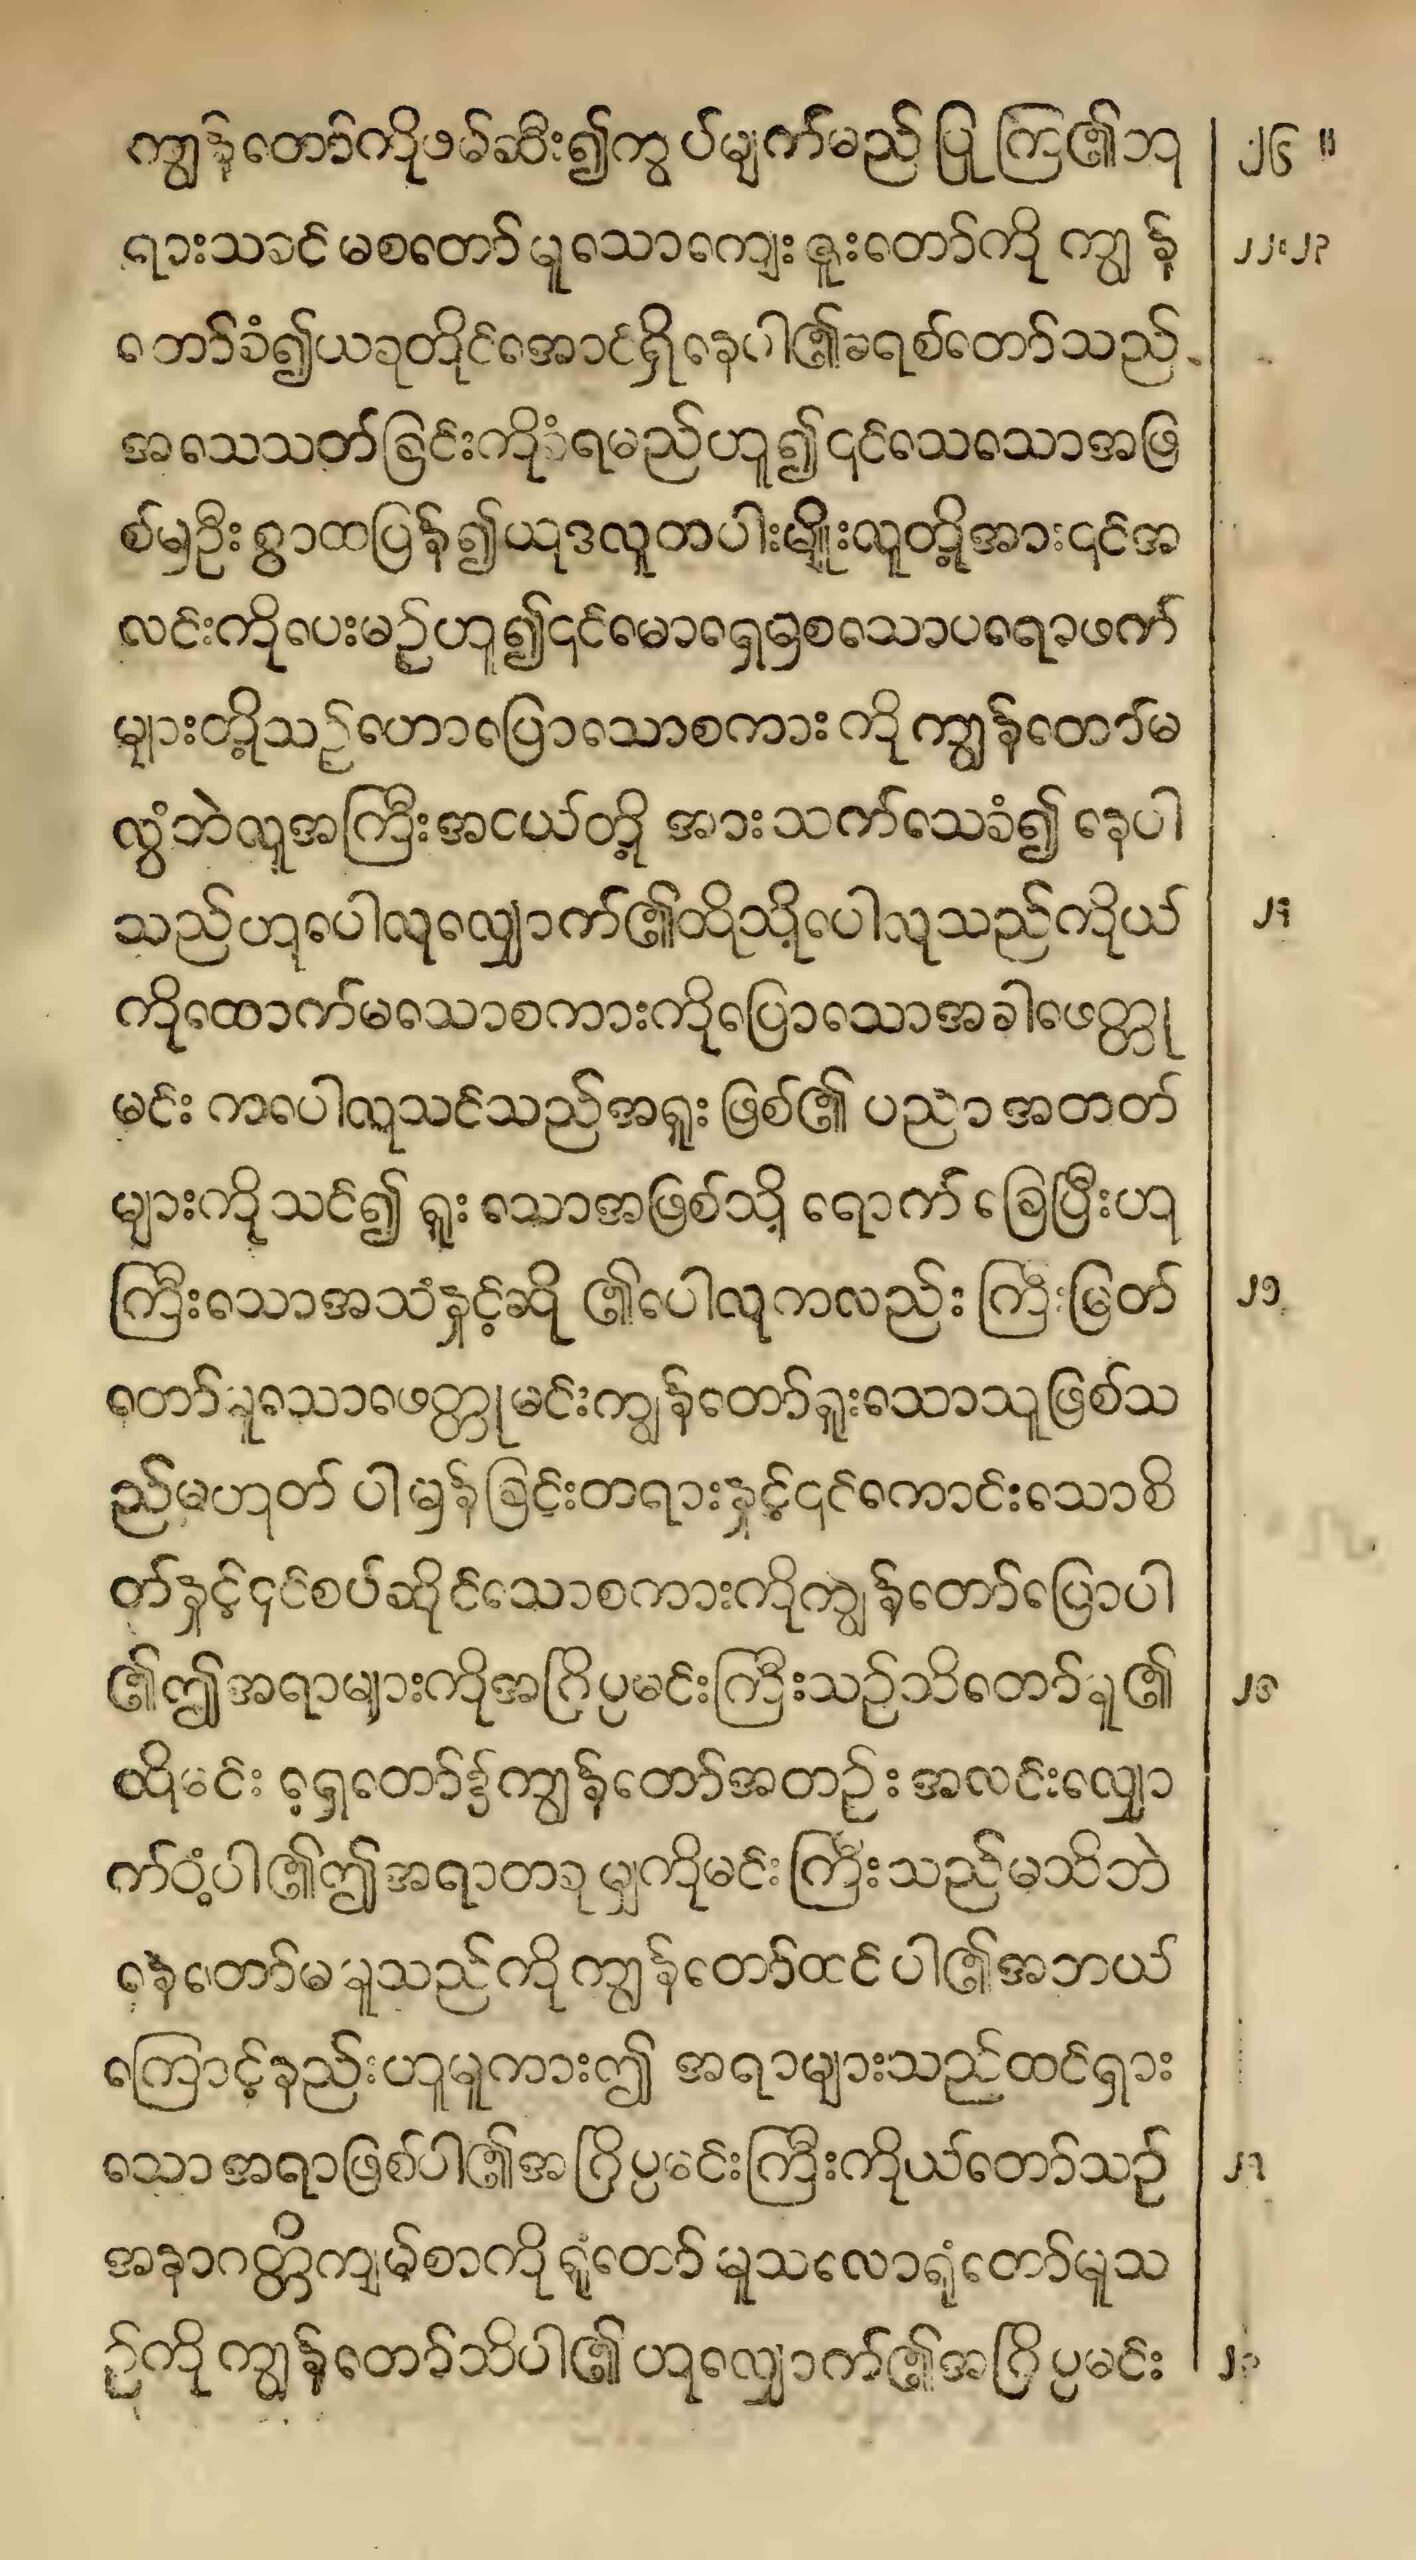 ကျွန်တော်ကိုဖမ်ဆီး၍ကွပ်မျက်မည်ပြုကြ၏ဘု ၂၆။
ရားသခင်မစတော်မူသောကျေးဇူးတော်ကိုကျွန် ၂၂း၂၃
တော်ခံ၍ယခုတိုင်အောင်ရှိနေပါ၏ခရစ်တော်သည်
အသေသတ်ခြင်းကိုခံရမည်ဟူ၍၎င်သေသောအဖြ
စ်မှဦးစွာထပြန်၍ယုဒလူတပါးမျိုးလူတို့အား၎င်အ
လင်းကိုပေးမဉ်ဟူ၍၎င်မောရှေမှစသောပရောဖက်
များတို့သဉ်ဟောပြောသောစကားကိုကျွန်တော်မ
လွံဘဲလူအကြီးအငယ်တို့အားသက်သေခံ၍နေပါ
သည်ဟုပေါလုလျှောက်၏ထိုသို့ပေါလုသည်ကိုယ် ၂၄
ကိုထောက်မသောစကားကိုပြောသောအခါဖေတ္တု
မင်းကပေါလုသင်သည်အရူးဖြစ်၏ပညာအတတ်
များကိုသင်၍ရူးသောအဖြစ်သို့ရောက်ခြေပြီးဟု
ကြီးသောအသံနှင့်ဆို၏ပေါလုကလည်းကြီးမြတ် ၂၅
တော်မူသောဖေတ္တုမင်းကျွန်တော်ရူးသောသူဖြစ်သ
ည်မဟုတ်ပါမှန်ခြင်းတရားနှင့်၎င်ကောင်းသောစိ
တ်နှင့်၎င်စပ်ဆိုင်သောစကားကိုကျွန်တော်ပြောပါ
၏ဤအရာများကိုအဂြိပ္ပမင်းကြီးသဉ်သိတော်မူ၏ ၂၆
ထိုမင်းရှေ့တော်၌ကျွန်တော်အတဉ်းအလင်းလျှော
က်ဝံ့ပါ၏ဤအရာတခုမျှကိုမင်းကြီးသည်မသိဘဲ
နေတော်မမူသည်ကိုကျွန်တော်ထင်ပါ၏အဘယ်
ကြောင့်နည်းဟူမူကားဤအရာများသည်ထင်ရှား
သောအရာဖြစ်ပါ၏အဂြိပ္ပမင်းကြီးကိုယ်တော်သဉ် ၂၇
အနာဂတ္တိကျမ်စာကိုရုံတော်မူသလောရုံတော်မူသ
ဉ်ကိုကျွန်တော်သိပါ၏ဟုလျှောက်၏အဂြိပ္ပမင်း